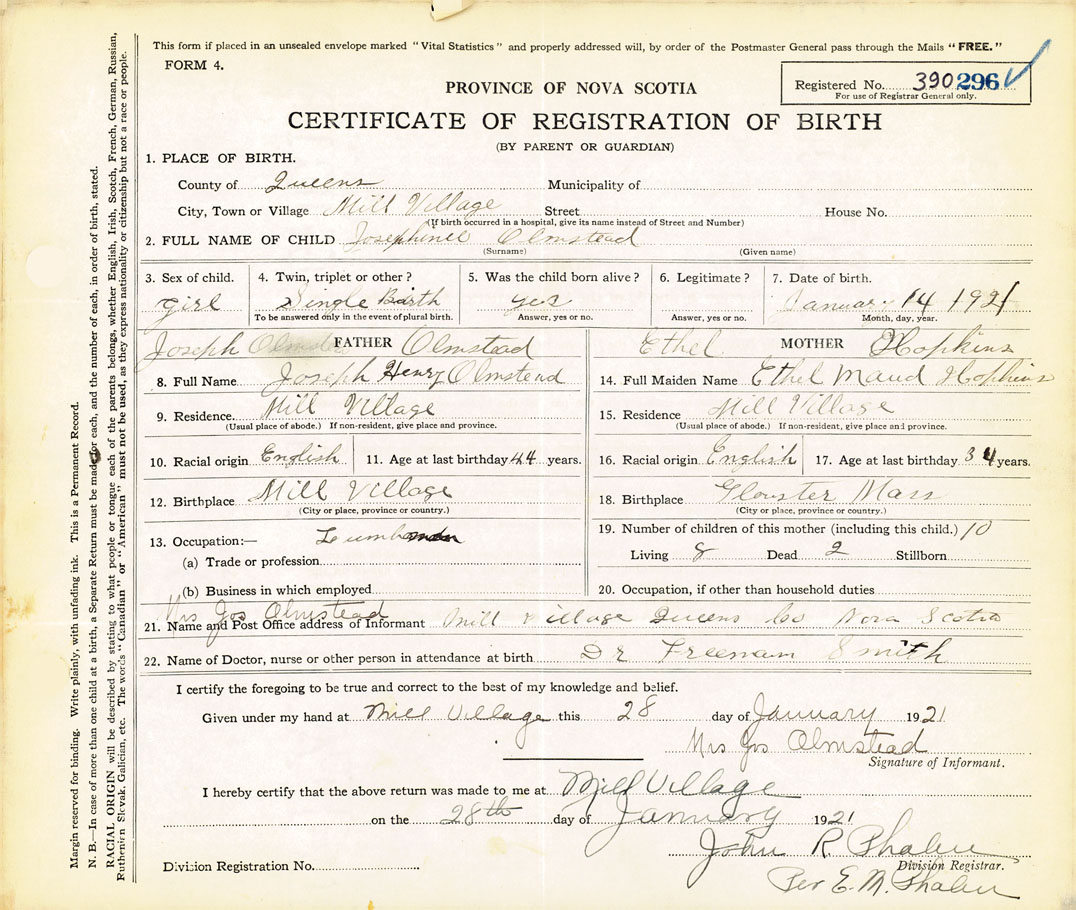 This form if placed in an unsealed envelope marked "Vital Statistics" and properly addressed will, by order of the Postmaster General pass through the Mails "FREE."
FORM 4.
Registered No. 390296
For use of Registrar General only.
PROVINCE OF NOVA SCOTIA
CERTIFICATE OF REGISTRATION OF BIRTH
(BY PARENT OR GUARDIAN)
1. PLACE OF BIRTH.
County of Queens Municipality of
City, Town or Village Mill Village Street House No.
(If birth occurred in a hospital, give its name instead of Street and Number)
2. FULL NAME OF CHILD Josephinee Olmstead
(Surname) (Given name)
3. Sex of child. 4. Twin, triplet or other? 5. Was the child born alive? 6. Legitimate? 7. Date of birth.
girl Single Birth yes January 14 1921
To be answered only in the event of plural birth. Answer, yes or no. Answer, yes or no. Month, day, year.
Joseph Olmstead FATHER Olmstead Ethel MOTHER Hopkins
8. Full Name Joseph Henry Olmstead 14. Full Maiden Name Ethel Maud Hopkins
9. Residence. Mill Village 15. Residence Mill Village
(Usual place of abode.) If non-resident, give place and province. (Usual place of abode.) If non-resident, give place and province.
10. Racial origin English 11. Age at last birthday 44 years. 16. Racial origin English 17. Age at last birthday 34 years.
12. Birthplace Mill Village 18. Birthplace Glouster Mass
(City or place, province or country.) (City or place, province or country.)
13. Occupation:— 19. Number of children of this mother (including this child.) 10
(a) Trade or profession Living 8 Dead 2 Stillborn
(b) Business in which employed 20. Occupation, if other than household duties
Mrs Jos Olmstead
21. Name and Post Office address of Informant Mill village Queens Co Nova Scotia
22. Name of Doctor, nurse or other person in attendance at birth Dr Freeman Smith
I certify the foregoing to be true and correct to the best of my knowledge and belief.
Given under my hand at Mill Village this 28 day of January 1921
Mrs Jos Olmstead
Signature of Informant.
I hereby certify that the above return was made to me at Mill Village
on the 28th day of January 1921
John R. Phalen
Division Registrar.
Division Registration No.
Per E. M. Phalen
Margin reserved for binding. Write plainly, with unfading ink. This is a Permanent Record.
N. B.—In case of more than one child at a birth, a Separate Return must be made for each, and the number of each, in order of birth, stated.
RACIAL ORIGIN will be described by stating to what people or tongue each of the parents belongs, whether English, Irish, Scotch, French, German, Russian,
Ruthenian Slovak, Galician, etc. The words "Canadian" or "American" must not be used, as they express nationality or citizenship but not a race or people.